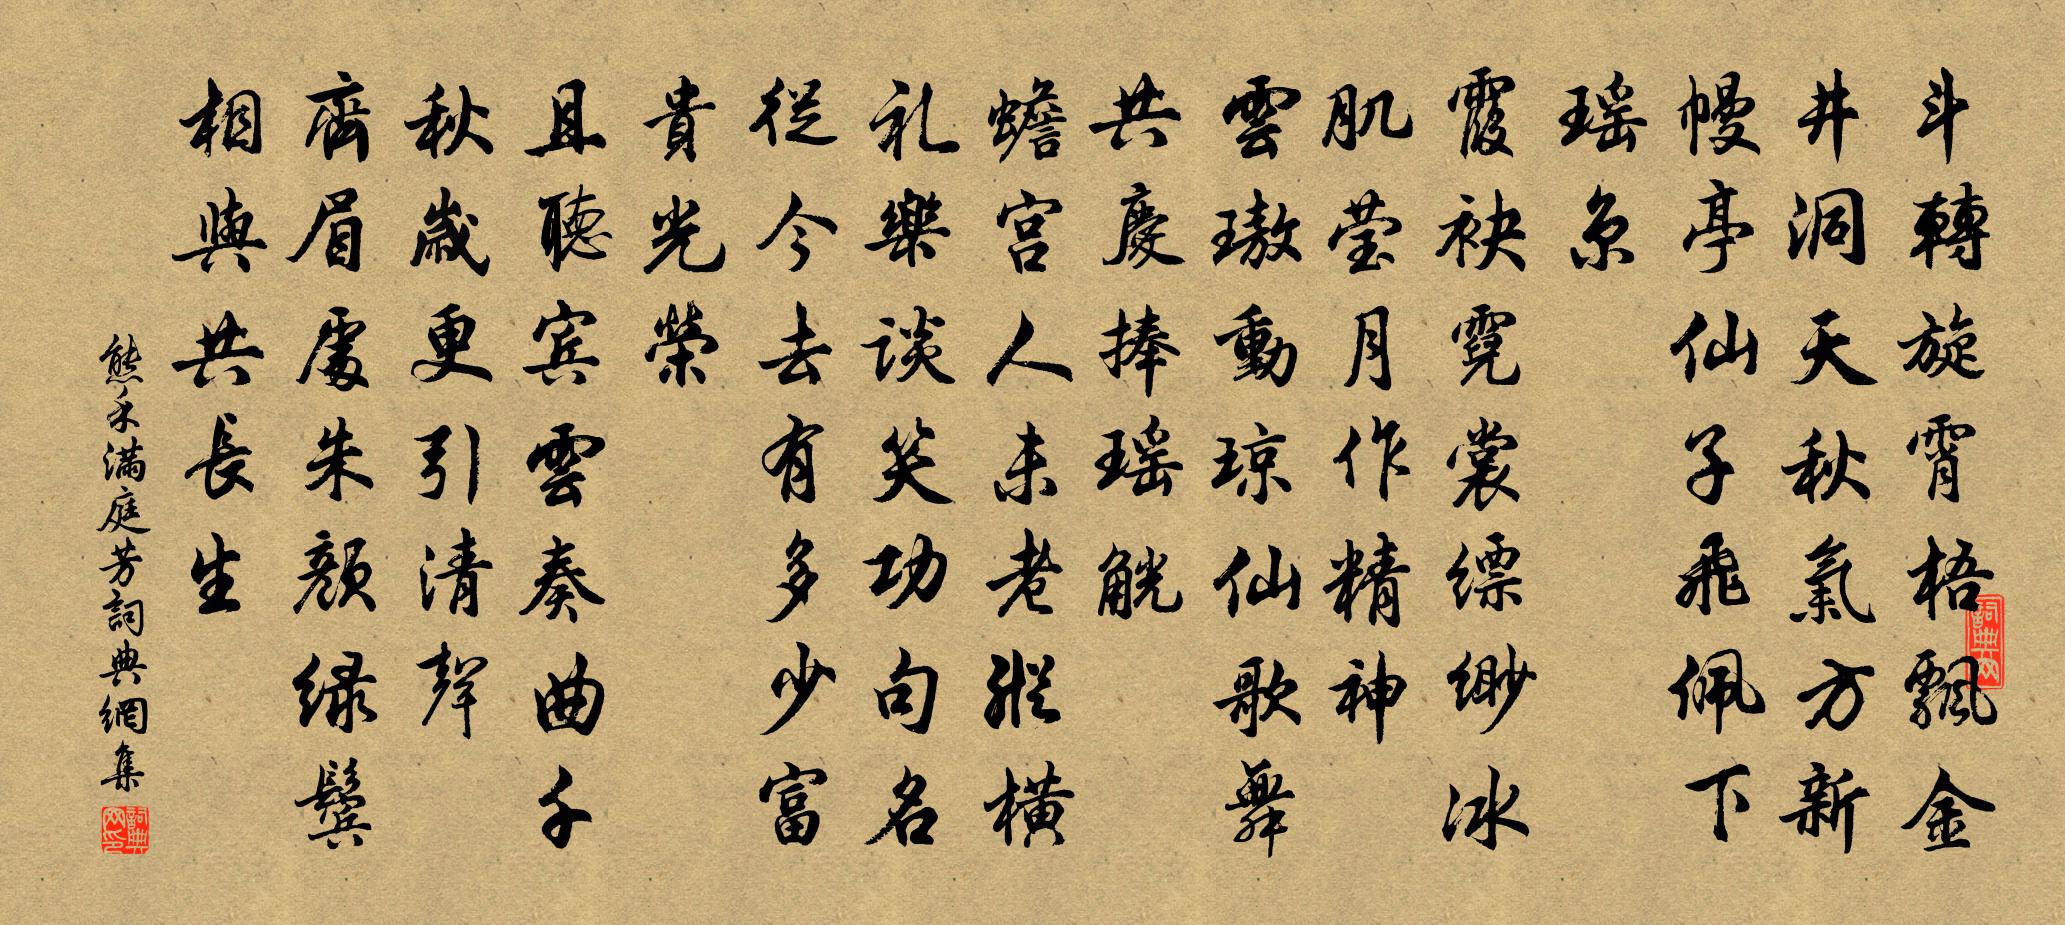 斗轉旋霄梧飄金
井洞天秋氣方新
幔亭仙子飛佩下
瑶京
霞袂霓裳縹緲冰
肌莹月作精神
雲璈動琼仙歌舞
共慶捧瑶觥
蟾宫人未老縱横
礼樂談笑功句名
從今去有多少富
貴光榮
且聽宾雲奏曲千
秋歲更引清聲
齊眉處朱顏緑鬓
相與共長生
熊禾滿庭芳詞典網集
詞典网
詞典网印